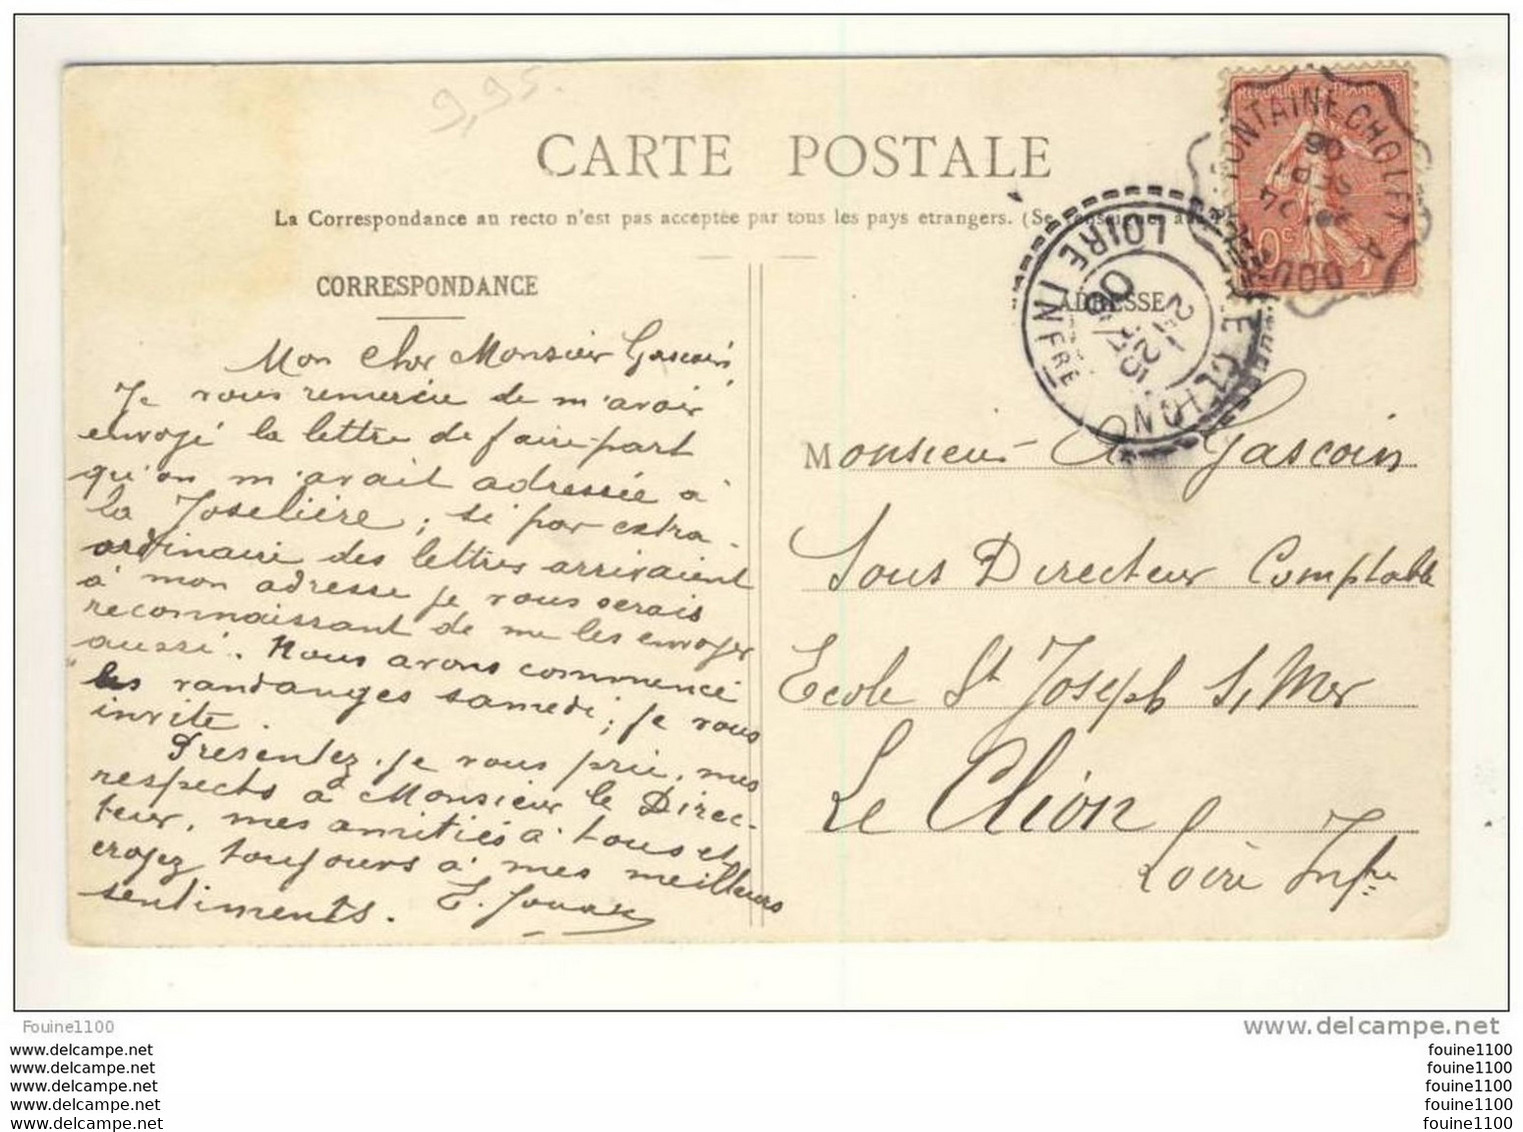 9,95.
CARTE POSTALE
La Correspondance au recto n'est pas acceptée par tous les pays etrangers. (Se renseigner à la
CORRESPONDANCE
Mon cher Monsieur Gascoin
Je vous remercie de m'avoir
envoyé la lettre de faire-part
qu'on m'avait adressée à
la Joselière ; si par extra-
ordinaire des lettres arrivaient
à mon adresse je vous serais
reconnaissant de me les envoyer
aussi. Nous avons commencé
les vandanges samedi ; je vous
invite.
Présentez, je vous prie, mes
respects à Monsieur le Direc-
teur, mes amitiés à tous et
croyez toujours à mes meilleurs
sentiments. E.
FONTAINE CHOLET A
24
SEPT
06
LE CLION
LOIRE INFRE
25
06
ADRESSE
Monsieur A. Gascoin
Sous Directeur Comptable
Ecole St Joseph S, Mer
Le Clion
Loire Infre
Fouine1100
www.delcampe.net
www.delcampe.net
www.delcampe.net
www.delcampe.net
www.delcampe.net
www.delcampe.net
fouine1100
fouine1100
fouine1100
fouine1100
fouine1100